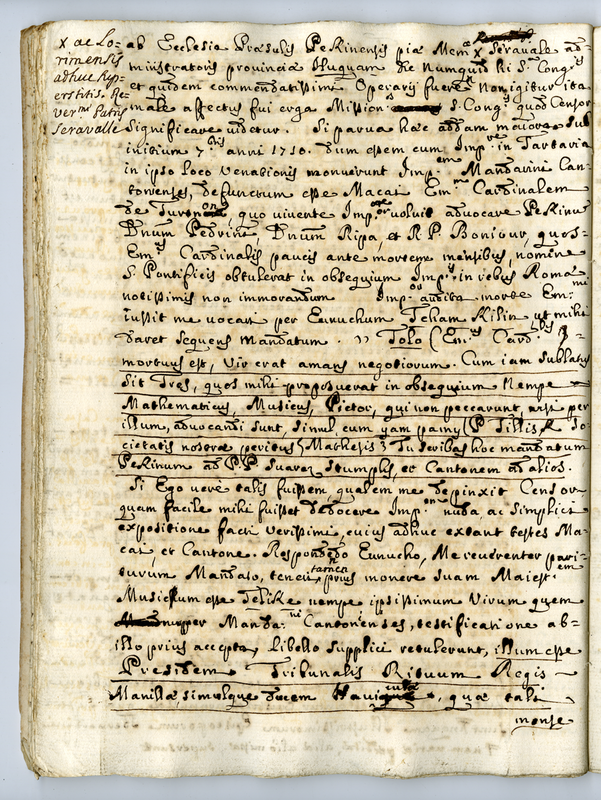 x ac Lo=
rimensis
adhuc Rŷp=
erstitis. Re
vermi Patris
Seravalle
ab Ecclesia Præsulis Pekinensis piæ Mem. x Seravale ad=
ministratoris provinciæ Huquam
et quidem commendatissimi Operarij fuere Non igitur ita
male affectus fui erga Mission. S. Congis quod Censor
Significare videtur. Si parva hæc addam maiora. Sub
initium 7bris anni 1710. dum essem cum Impre in Tartaria
in ipso loco venationis monuerunt Impem Mandarini Can=
tonienses, defunctum esse Macai Emm Cardinalem
de Turnon, quo vivente Impor voluit advocare Pekinu
Dnum Pedrini, Dnum Ripa, et R. P. Bonjour, quos=
Emus Cardinalis paucis ante mortem mensibus, nomine
S. Pontificis obtulerat in obsequium Impris in rebus Roma
notissimis non immorandum Impor audita morte Emmi
iussit me vocari per Eunuchum Tcham Kilin ut mihi
daret sequens mandatum. Tolo (Emus Cardlis)
mortuus est, Vir erat amans negotiorum. Cum iam sublatus
Sit Tres, quos mihi proposuerat in obsequium Nempe
Mathematicus, Musicus, Pictor, qui non peccarunt, nisi per
illum, advocandi sunt, simul cum yam pamy (P Tillisk So=
cietatis nostræ peritus Mathesis) Tu scribas hoc mandatum
Pekinum ad P.P Suarez Stumpls, et Cantonem ad alios.
Si Ego verè talis fuissem, qualem me depinxit Censor
quam facile mihi fuisset dedocere Impem nuda, ac Simplici
expositione facti verissimi, cuius adhuc extant testes Ma=
cai, et Cantone. Respondendo Eunucho, Me reverenter pari=
turum Mandato, teneri tamen prius monere suam Maiestem
Musicum esse TeliKe nempe ipsissimum Virum quem
nuper Manda:ni Cantonenses, testificatione ab=
illo prius accepta, libello supplici retulerunt, illum esse
Presidem Tribunalis Rituum Regis
Manilla, simulque ducem, quæ tali
monse